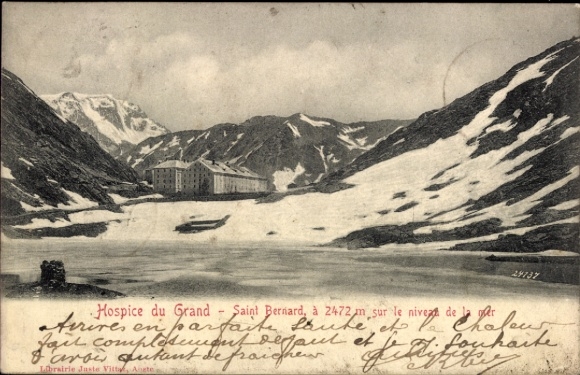 24737
Hospice du Grand - Saint Bernard, à 2472 m sur le niveau de la mer
Arrivés en parfaite Santé et la Chaleur
fait complètement défaut et je Souhaite
d'avoir autant de fraicheur
Librairie Juste Vittaz, Aoste